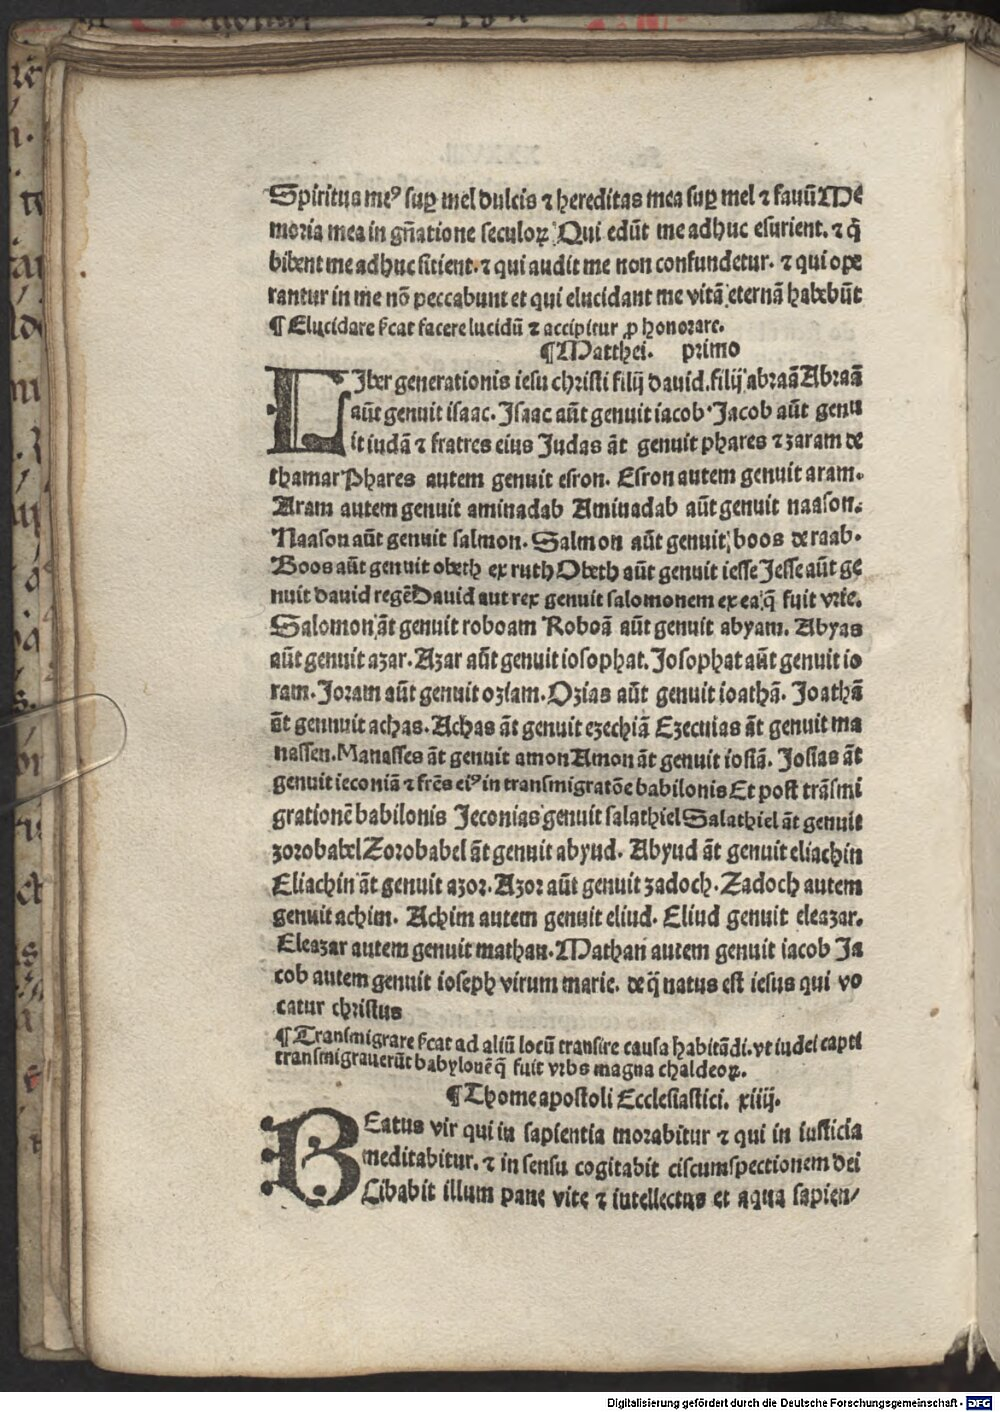 Spiritus meꝰ suꝑ mel dulcis ⁊ hereditas mea suꝑ mel ⁊ fauū Me
moria mea in gn̄atione seculoꝝ Qui edūt me adhuc esurient. ⁊ q̄
bibent me adhuc sitient. ⁊ qui audit me non confundetur. ⁊ qui ope
rantur in me nō peccabunt et qui elucidant me vitā eternā habebūt
¶ Elucidare s̄cat facere lucidū ⁊ accipitur ꝓ honorare.
¶Matthei. primo
LIber generationis iesu christi filij dauid. filij abraā Abraā
aūt genuit isaac. Isaac aūt genuit iacob. Jacob aūt genu
it iudā ⁊ fratres eius Judas āt genuit phares ⁊ zaram de
thamar Phares autem genuit esron. Esron autem genuit aram.
Aram autem genuit aminadab Aminadab aūt genuit naason.
Naason aūt genuit salmon. Salmon aūt genuit boos de raab.
Boos aūt genuit obeth ex ruth Obeth aūt genuit iesse Jesse aūt ge
nuit dauid regē Dauid aut rex genuit salomonem ex ea q̄ fuit vrie.
Salomon āt genuit roboam Roboā aūt genuit abyam. Abyas
aūt genuit azar. Azar aūt genuit iosophat. Josophat aūt genuit io
ram. Joram aūt genuit oziam. Ozias aūt genuit ioathā. Joathā
āt gennuit achas. Achas āt genuit ezechiā Ezecuias āt genuit ma
nassen. Manasses āt genuit amon Amon āt genuit iosiā. Josias āt
genuit ieconiā ⁊ frēs eiꝰ in transmigratōe babilonis Et post trāsmi
grationē babilonis Jeconias genuit salathiel Salathiel āt genuit
zorobabel Zorobabel āt genuit abyud. Abyud āt genuit eliachin
Eliachin āt genuit azor. Azor aūt genuit zadoch. Zadoch autem
genuit achim. Achim autem genuit eliud. Eliud genuit eleazar.
Eleazar autem genuit mathan. Mathan autem genuit iacob Ja
cob autem genuit ioseph virum marie. de q̄ natus est iesus qui vo
catur christus
¶ Transmigrare s̄cat ad aliū locū transire causa habitādi. vt iudei capti
transmigrauerūt babylonē q̄ fuit vrbs magna chaldeoꝝ.
¶Thome apostoli Ecclesiastici. xiiij.
BEatus vir qui in sapientia morabitur ⁊ qui in iusticia
meditabitur. ⁊ in sensu cogitabit circumspectionem dei
Cibabit illum pane vite ⁊ intellectus et aqua sapien/
Digitalisierung gefördert durch die Deutsche Forschungsgemeinschaft - DFG